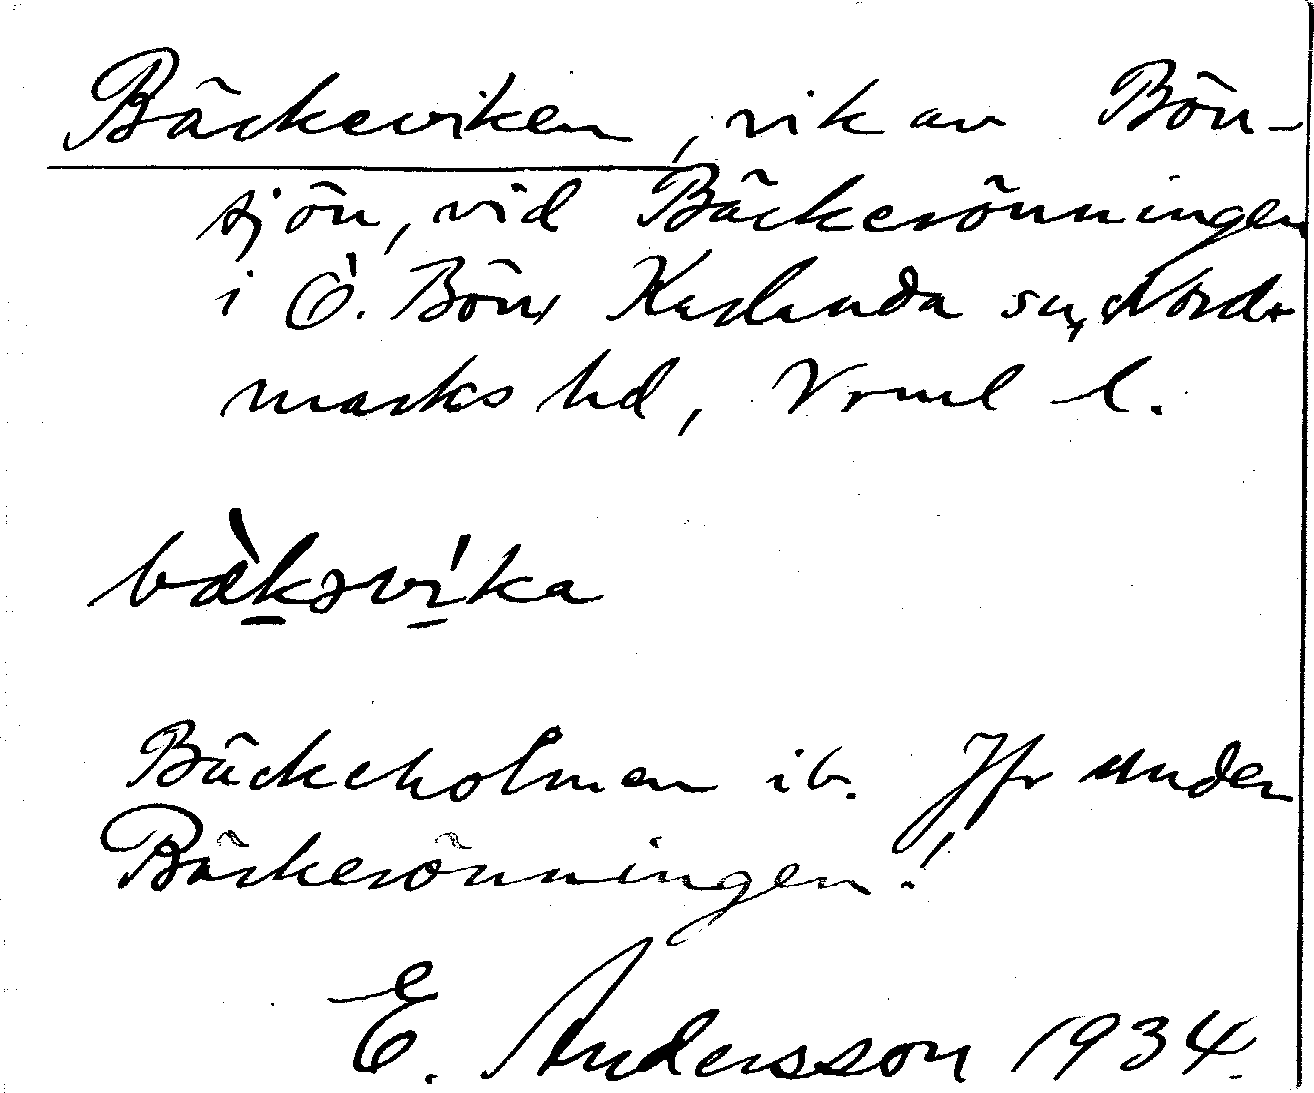 Bäckeviken, vik av Bön-
sjön, vid Bäckerönningen
i Ö. Bön, Karlanda sn, Nord-
marks hd, Vrml l.
bæ̀kəvíka
Bäckeholmen ib. Jfr under
Bäckerönningen!
E. Andersson 1934.